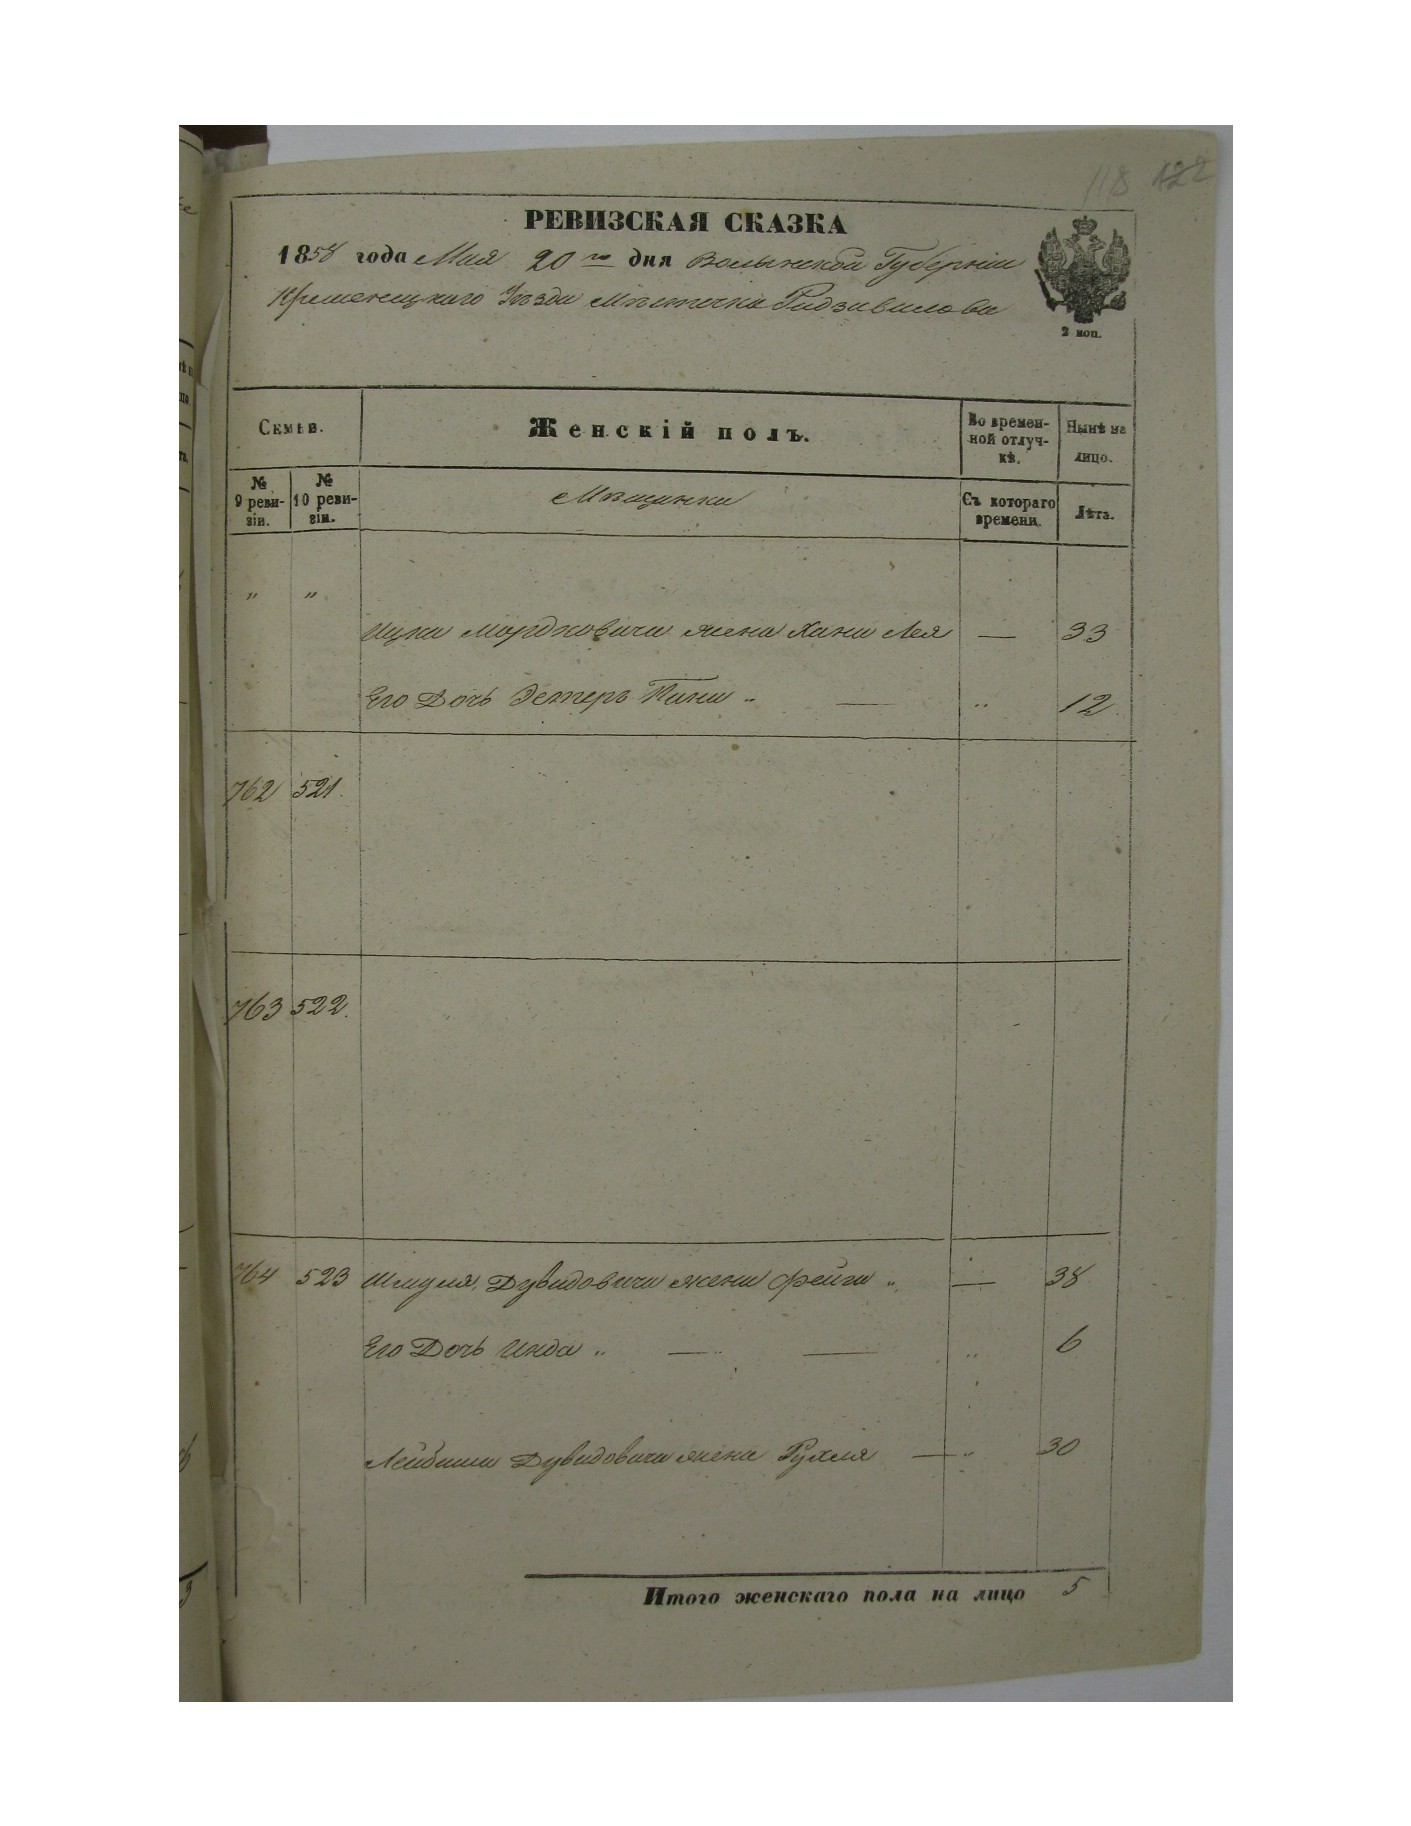 118 122
РЕВИЗСКАЯ СКАЗКА
1858 года Мая 20 го дня Волынской Губерніи
Кременецкаго Уѣзда Мѣстечка Радзивилова
2 коп.
Семьи.
Женскій полъ.
Во времен-
ной отлуч-
кѣ.
Нынѣ на
лицо.
№
9 реви-
зіи.
№
10 реви-
зіи.
Мѣщанки
Съ котораго
времени.
Лѣта.
" "
Ицка Мордковича жена Хана Лея — 33
Его Дочь Эстеръ Тана " — " 12
762 521.
763 522.
764 523 Шмуля Дувидовича жена Фейга " — 38
Его Дочь Инда " — — " 6
Лейбиша Дувидовича жена Рухля — " 30
Итого женскаго пола на лицо 5